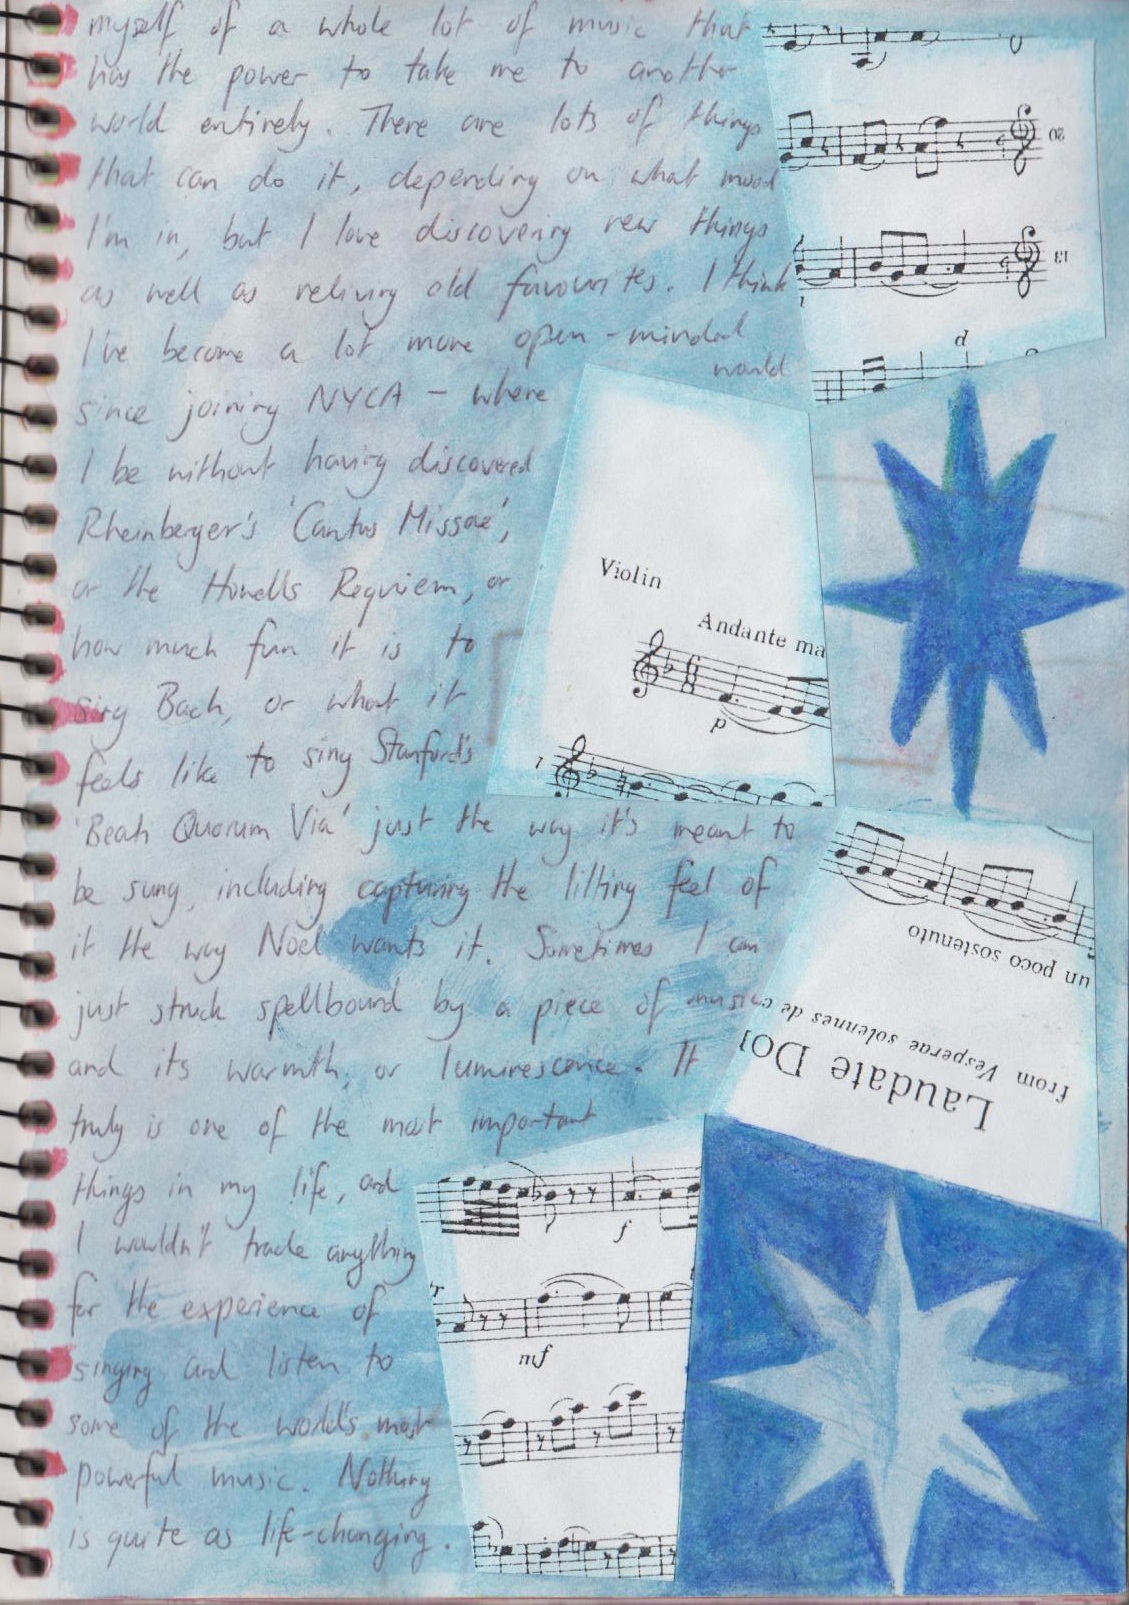 myself of a whole lot of music that
has the power to take me to another
world entirely. There are lots of things
that can do it, depending on what mood
I'm in, but I love discovering new things
as well as reliving old favourites. I think
I've become a lot more open-minded
since joining NYCA – where would
I be without having discovered
Rheinberger's 'Cantus Missae',
or the Howells Requiem, or
how much fun it is to
sing Bach, or what it
feels like to sing Stanford's
'Beati Quorum Via' just the way it's meant to
be sung, including capturing the lilting feel of
it the way Noel wants it. Sometimes I am
just struck spellbound by a piece of music
and its warmth, or luminescence. It
truly is one of the most important
things in my life, and
I wouldn't trade anything
for the experience of
singing and listen to
some of the world's most
powerful music. Nothing
is quite as life-changing.
20
13
d
Violin
Andante ma
p
7
un poco sostenuto
from Vesperae solennes de c
Laudate Do
f
mf